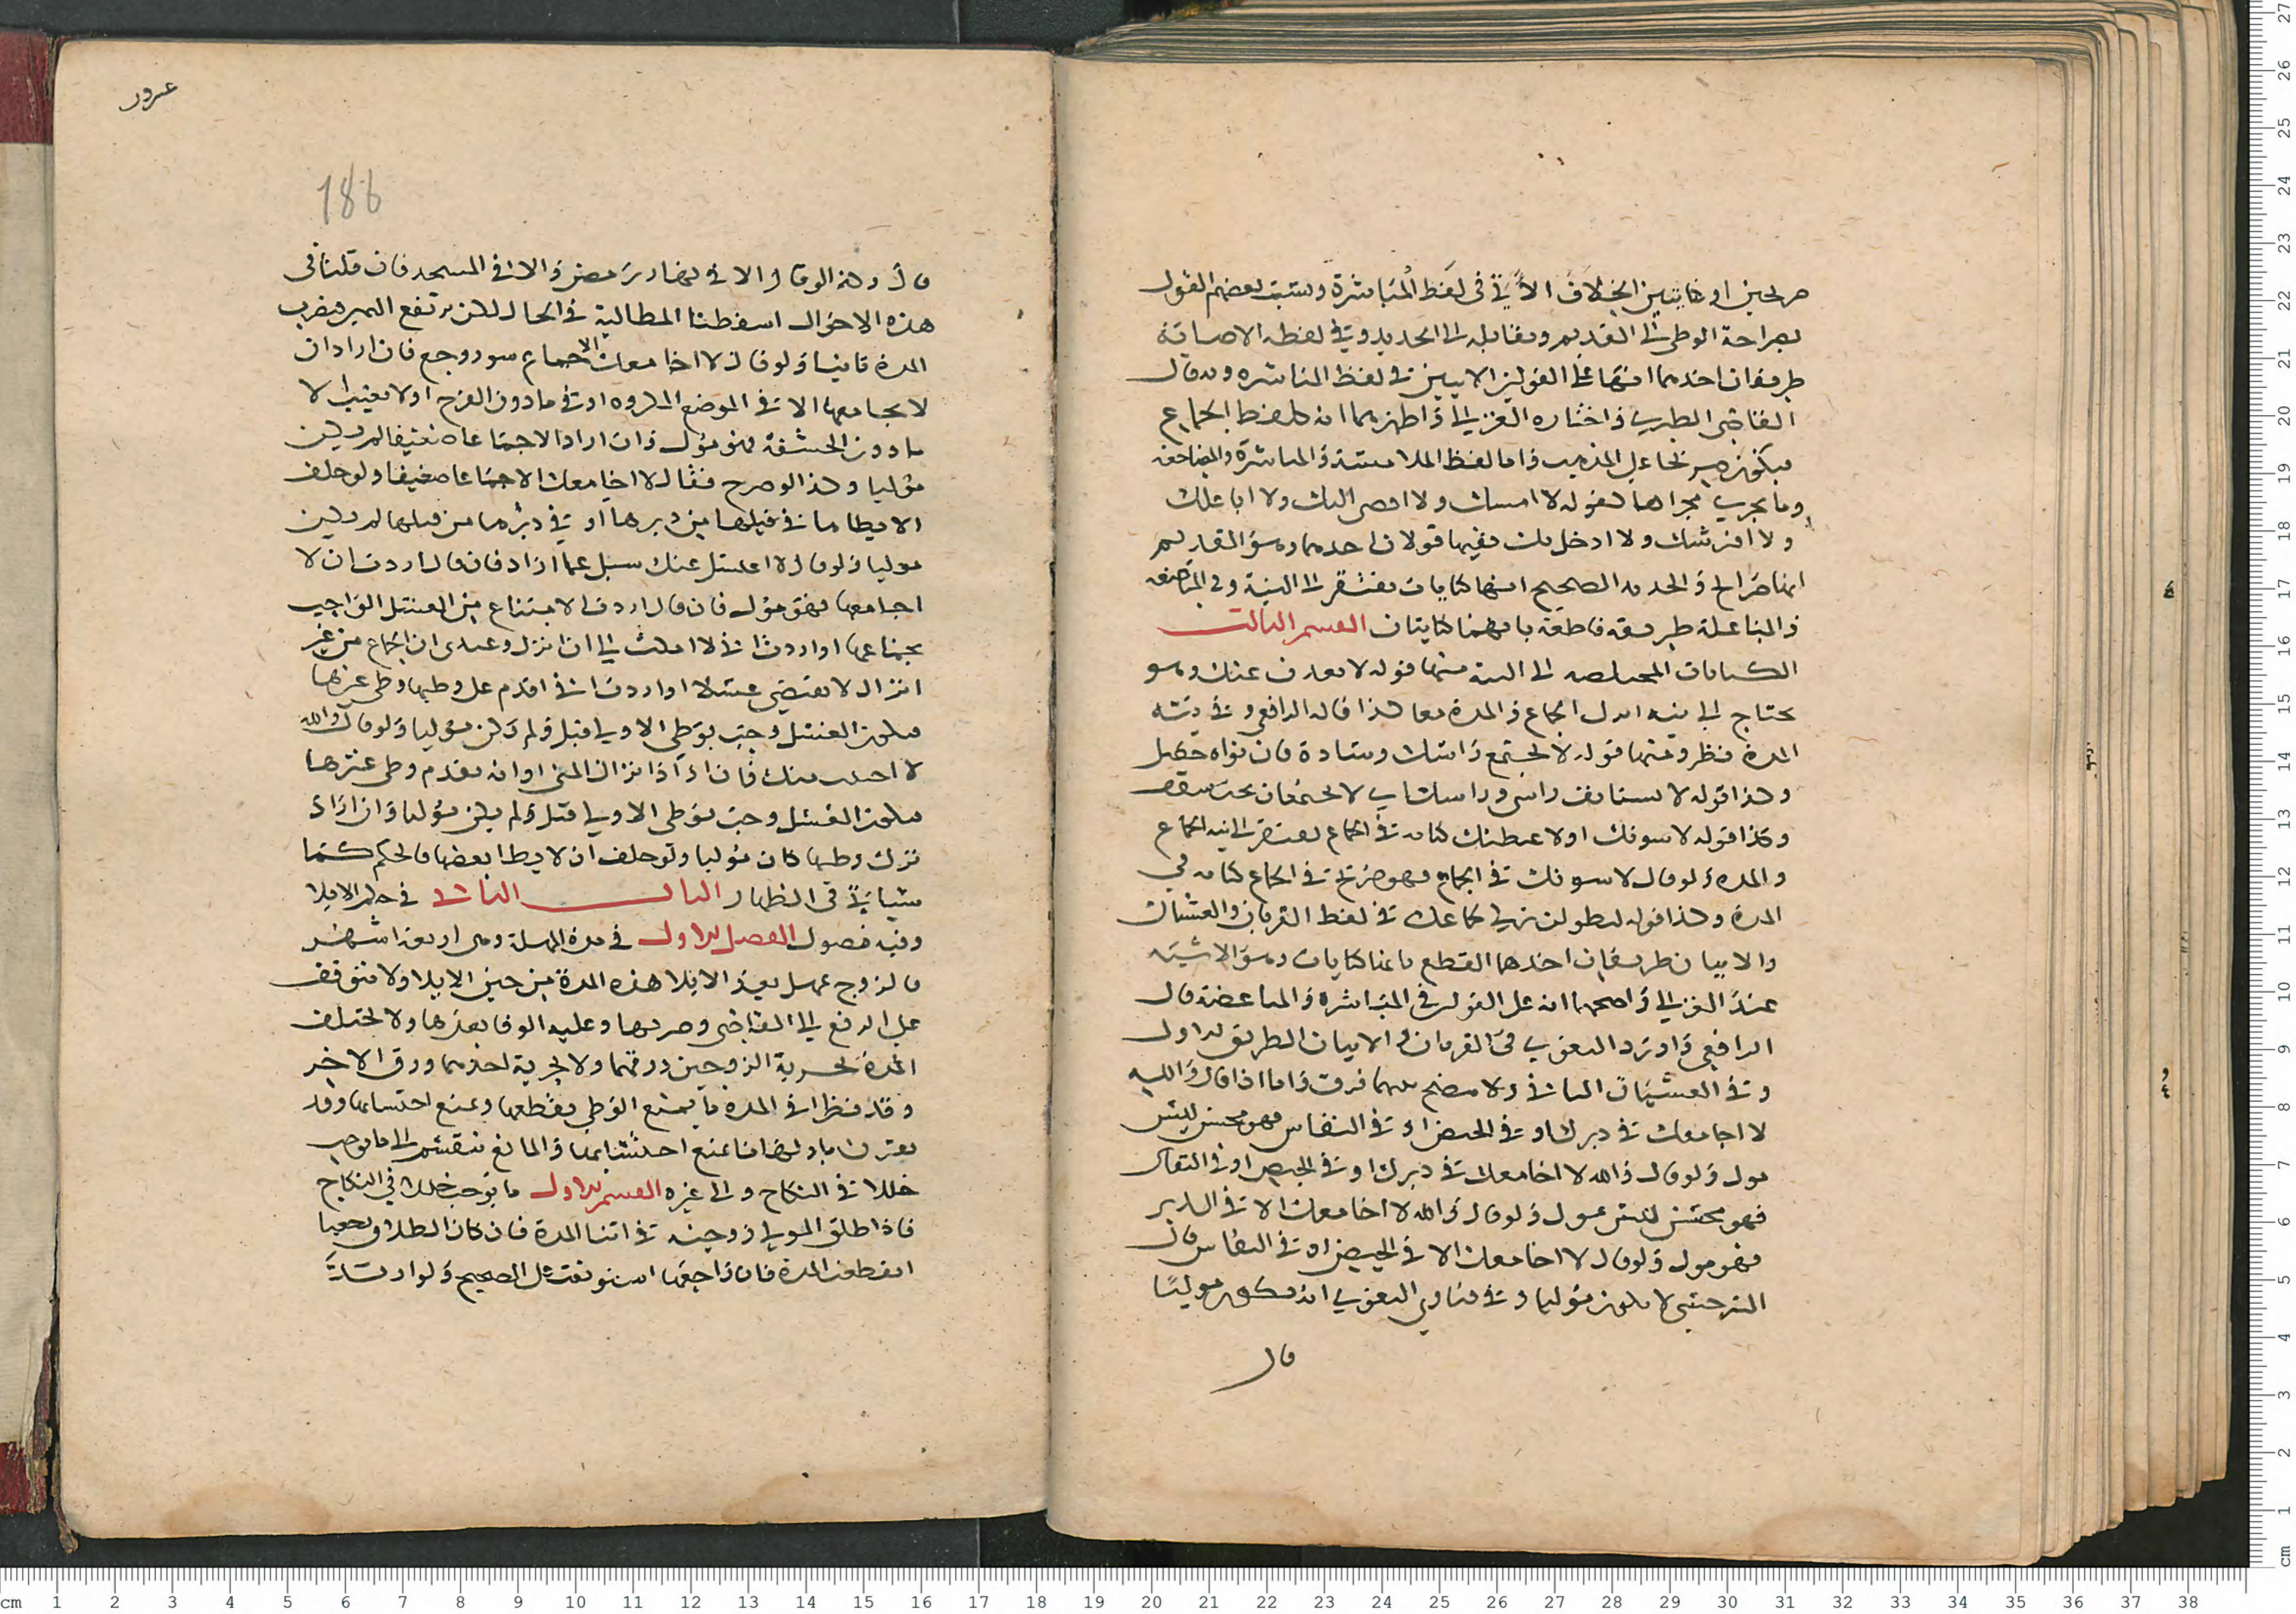 صريحين او كنايتين الخلاف الاتي في لفظ المباشرة ونسب بعضهم القول
بصراحة الوطي الى القديم ومقابله الى الجديد وفي لفظه الاصابة
طريقان احدهما انها على القولين الاتيين في لفظ المباشره وبه قال
القاضي الطبري واختاره الغزالي واظهرهما انه كلفظ الجماع
فيكون صريحا على المذهب واما لفظ الملامسة والمباشرة والمضاجعه
وما يجري مجراها كقوله لا امسك ولا افضي اليك ولا اباعلك
ولا افترشك ولا ادخل بك ففيها قولان احدهما وهو القديم
انها صرايح والجديد الصحيح انها كنايات تفتقر الى النية وفي
والمباعلة طريقة قاطعة بانهما كنايتان القسم الثالث
الكنايات المحتاجه الى النية منها قوله لا بعدن عنك وهو
يحتاج الى نية الجماع والمدة معا كذا قاله الرافعي وفي نية
المدة نظر ومنها قوله لا يجتمع راسك وسادة فان نواه حصل
وكذا قوله لا راسي وراسك اي لا يجتمعان تحت سقف
وكذا قوله لاسونك او لاغيظنك كناية في الجماع يفتقر الى نية الجماع
والمدة ولو قال لاسونك في الجماع فهو صريح في الجماع كناية في
المدة وكذا قوله ليطولن تركي لجماعك وفي لفظ القربان والغشيان
والاتيان طريقان احدهما القطع بانها كنايات وهو الاشبه
عند الغزالي واصحهما انه على القولين في المباشرة والمباضعة قال
الرافعي واورد البغوي في القربان والاتيان الطريق الاول
وفي الغشيان الثاني ولا يتضح بينهما فرق واما اذا قال والله
لا اجامعك في دبرك او في الحيض او في النفاس فهو محسن ليس
بمول ولو قال والله لا اجامعك في دبرك او في الحيض او في النفاس
فهو محسن ليس بمول ولو قال والله لا اجامعك الا في الدبر
فهو مول ولو قال لا اجامعك الا في الحيض او في النفاس قال
السرخسي لا يكون موليا وفي فتاوي البغوي انه يكون موليا
قال
عرور
186
قال وكذا لو قال الا في نهار رمضان والا في المسجد فان قلنا في
هذه الاحوال اسقطنا المطالبة في الحال لكن يرتفع اليمين ويضرب
المدة ثانيا ولو قال لا اجامعك الا جماع سوء روجع فان اراد ان
لا يجامعها الا في الموضع المكروه او في ما دون الفرج او لا يغيب الا
ما دون الحشفة فهو مول وان اراد الا جماعا ضعيفا لم يكن
موليا وكذا لو صرح فقال لا اجامعك الا جماعا ضعيفا ولو حلف
لا يطاها في قبلها من دبرها او في دبرها من قبلها لم يكن
موليا ولو قال لا اغتسل عنك سيل عما اراد فان قال اردت ان لا
اجامعها فهو مول فان قال اردت الامتناع من الغسل الواجب
بجماعها او اردت اني لا امكث الى ان انزل وعندي ان الجماع من غير
انزال لا يقتضي غسلا او اردت اني اقدم على وطيها وطي غيرها
فيكون الغسل وجب بوطي الاولى قبل ولم يكن موليا ولو قال والله
لا اجنب منك فان اراد انزال المني او انه يقدم وطي غيرها
فيكون الغسل وجب بوطي الاولى قبل ولم يكن موليا وان اراد
ترك وطيها كان موليا ولو حلف ان لا يطا بعضها فالحكم كما
سياتي في الظهار الباب الثاني في حكم الايلا
وفيه فصول الفصل الاول في مدة المهلة وهي اربعة اشهر
فالزوج يمهل بعد الايلا هذه المدة من حين الايلا ولا تتوقف
على الرفع الى القاضي وضربها وعليه الوفا بعدها ولا تختلف
المدة بحرية الزوجين ورقهما ولا بحرية احدهما ورق الاخر
وقد يطرا في المدة ما يمنع الوطي يقطعها ويمنع احتسابها وقد
يقترن بابتدائها ما يمنع احتسابها والمانع ينقسم الى ما يوجب
خللا في النكاح والى غيره القسم الاول ما يوجب خللا في النكاح
فاذا طلق المولي زوجته في اثنا المدة فان كان الطلاق رجعيا
انقطعت المدة فان راجعها استونفت على الصحيح ولو ارتد